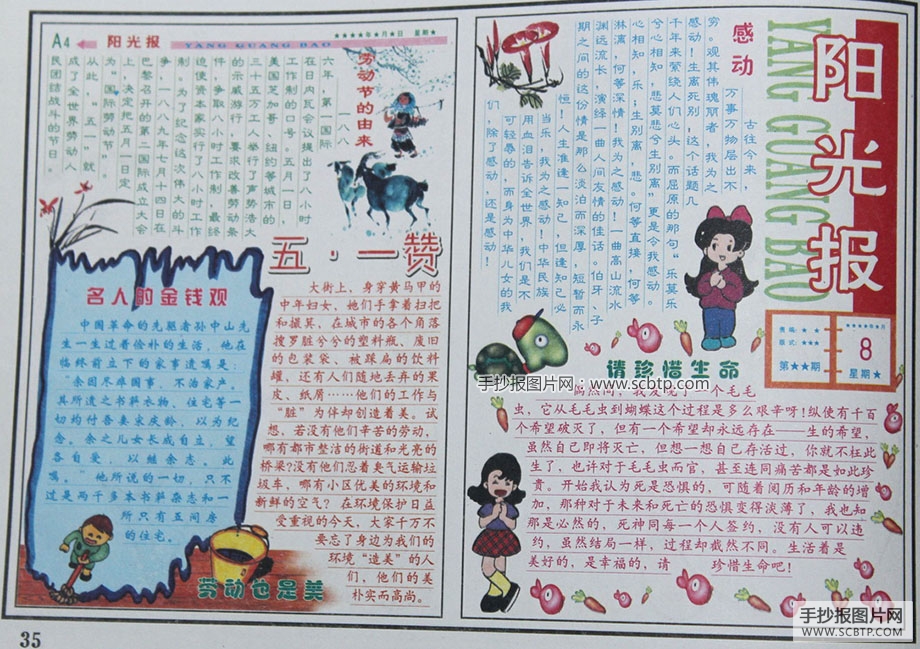 A4
阳光报
YANG GUANG BAO
★★★★年★月★日 星期★
劳动节的由来
一八八
六年，第一国际
在日内瓦会议提出了八小时
工作制的口号。五月一日，
美国芝加哥、纽约等城市
三十五万工人举行了声势浩大
的示威游行，要求改善劳动条
件，争取八小时工作制，最终
迫使资本家实行了八小时工作
制。为了纪念这次伟大的斗
争，一八八九年七月十四日在
巴黎召开的第二国际成立大会
上，决定把五月一日定
为“国际劳动节”。
从此，“五一”就
成了全世界劳动人
民团结战斗的节日。
五·一赞
大街上、身穿黄马甲的
中年妇女，他们手拿着扫把
和撮箕，在城市的各个角落
搜罗脏兮兮的塑料瓶、废旧
的包装袋、被踩扁的饮料
罐，还有人们随地去弃的果
皮、纸屑……他们的工作与
“脏”为伴却创造着美。试
想，若没有他们辛苦的劳动，
哪有都市整洁的街道和光亮的
桥梁?没有他们忍着臭气运输垃
圾车，哪有小区优美的环境和
新鲜的空气？在环境保护日益
受重视的今天，大家千万不
要忘了身边为我们的
环境“造美”的人
们，他们的美
朴实而高尚。
名人的金钱观
中国革命的先驱者孙中山先
生一生过着俭朴的生活，他在
临终前立下的家事遗嘱是：
“余因尽瘁国事，不治家产。
其所遗之书籍衣物、住宅等一
切均付吾妻宋庆龄，以为纪
念。余之儿女长成自立，望
各自爱，以继余志。此
嘱。”他所说的一切，只不
过是两千多本书籍杂志和一
所只有五间房
的住宅。
劳动也是美
35
阳光报
YANG GUANG BAO
责编：★ ★
版式：★★★
第★★期
★★★★年★月
8
星期★
感动
古往今来，
万事万物层出不
穷。观其伟瑰丽者，我为之
感动！生离死别，这个话题几
千年来萦绕人们心头。而屈原的那句“乐莫乐
兮心相知，悲莫悲兮生别离”更是令我感动。
心相知，乐；生别离，悲。何等直接，何等
淋漓，何等深情！我为之感动！一曲高山流水
渊远流长，演绎一曲人间友情的佳话。伯牙、子
期之间的这份情是那么淡泊而深厚，短暂而永
恒！人生准逢一知己，但逢知己必
当乐，我为之感动！中华民族
用血泪告诉全世界，我们是不
可轻辱的，而身为中华儿女的我
们，除了感动，还是感动！
请珍惜生命
手抄报图片网：www.scbtp.com
偶然间，我发现了一个毛毛
虫，它从毛毛虫到蝴蝶这个过程是多么艰辛呀！纵使有千百
个希望破灭了，但有一个希望却永远存在——生的希望，
虽然自己即将灭亡，但想一想自己存活过，你就不枉此
生了，也许对于毛毛虫而官，甚至连同痛苦都是如此珍
贵。开始我认为死是恐惧的，可随着阅历和年龄的增
加，那种对于未来和死亡的恐惧变得淡薄了，我也知
那是必然的，死神同每一个人签约，没有人可以违
约，虽然结局一样，过程却截然不同。生活着是
美好的，是幸福的，请珍惜生命吧！
手抄报图片网
WWW.SCBTP.COM